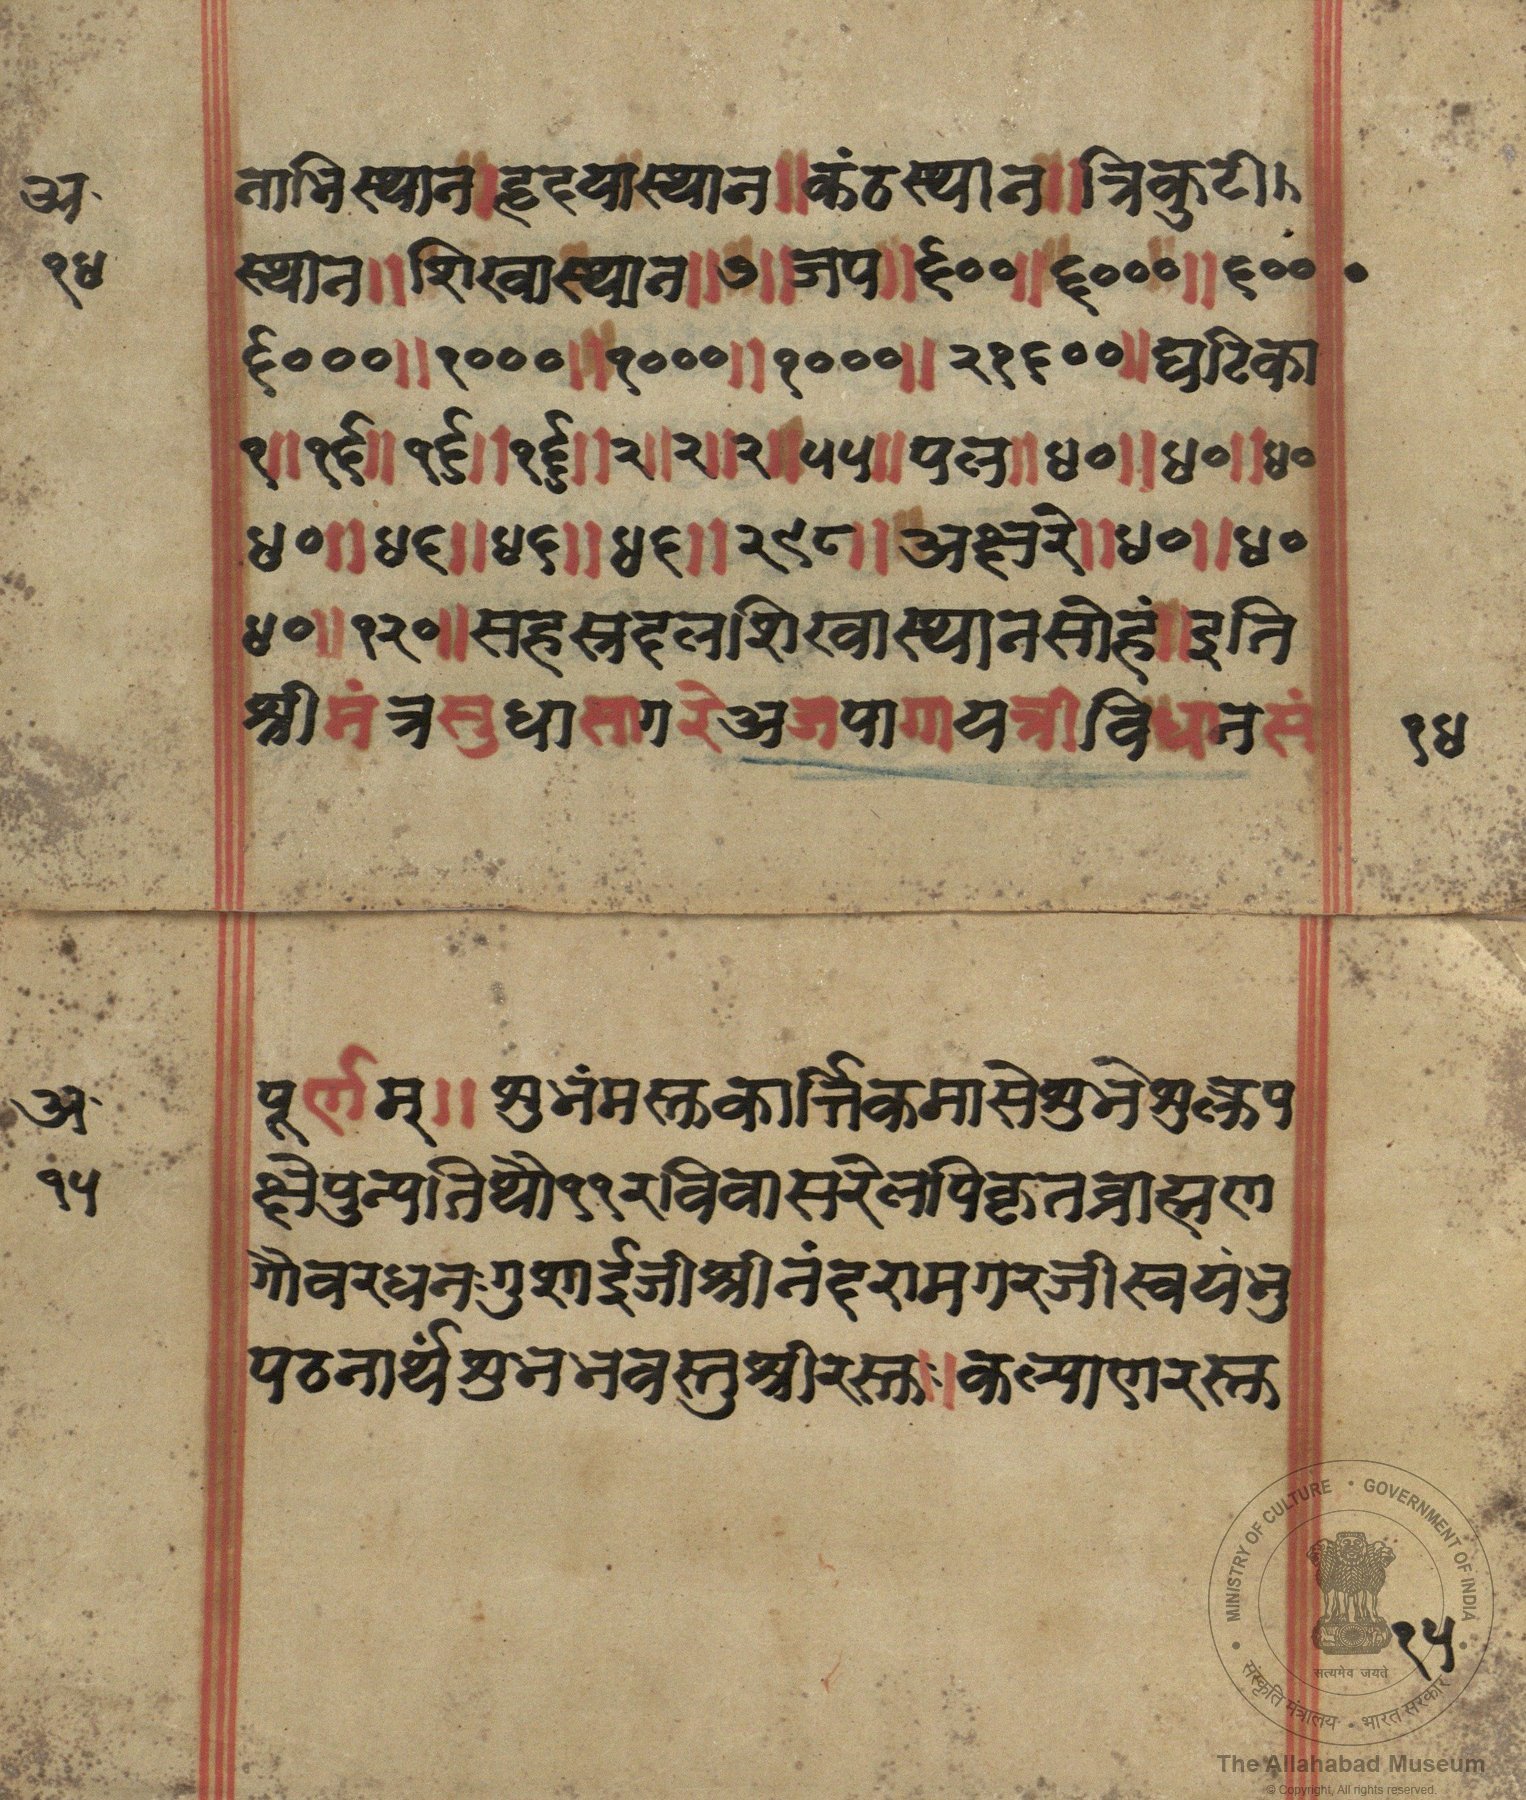 अ॰
१४
नाभिस्थान॥हृदयास्थान॥कंठस्थान॥त्रिकुटी॥
स्थान॥शिखास्थान॥७॥जप॥६००॥६०००॥६०००
६०००॥१०००॥१०००॥१०००॥२१६००॥घटिका
१॥१६॥१६॥१६॥२॥२॥२॥५५॥पल॥४०॥४०॥४०
४०॥४६॥४६॥४६॥२९८॥अक्षरे॥४०॥४०
४०॥१२०॥सहस्रदलशिखास्थानसोहं॥इति
श्रीमंत्रसुधासागरेअजपागायत्रीविधानसं
१४
अ॰
१५
पूर्णम्॥शुभंमस्तकार्त्तिकमासेशुभेशुल्कप
क्षेपुन्यतिथौ११रविवासरेलपिकृतब्राह्मण
गौवरधनःगुशाईजीश्रीनंदरामगरजीस्वयंभु
पठनार्थंशुभभवस्तुश्रीरस्तः॥कल्याणरस्त
१५
MINISTRY OF CULTURE • GOVERNMENT OF INDIA
सत्यमेव जयते
संस्कृति मंत्रालय • भारत सरकार
The Allahabad Museum
© Copyright, All rights reserved.